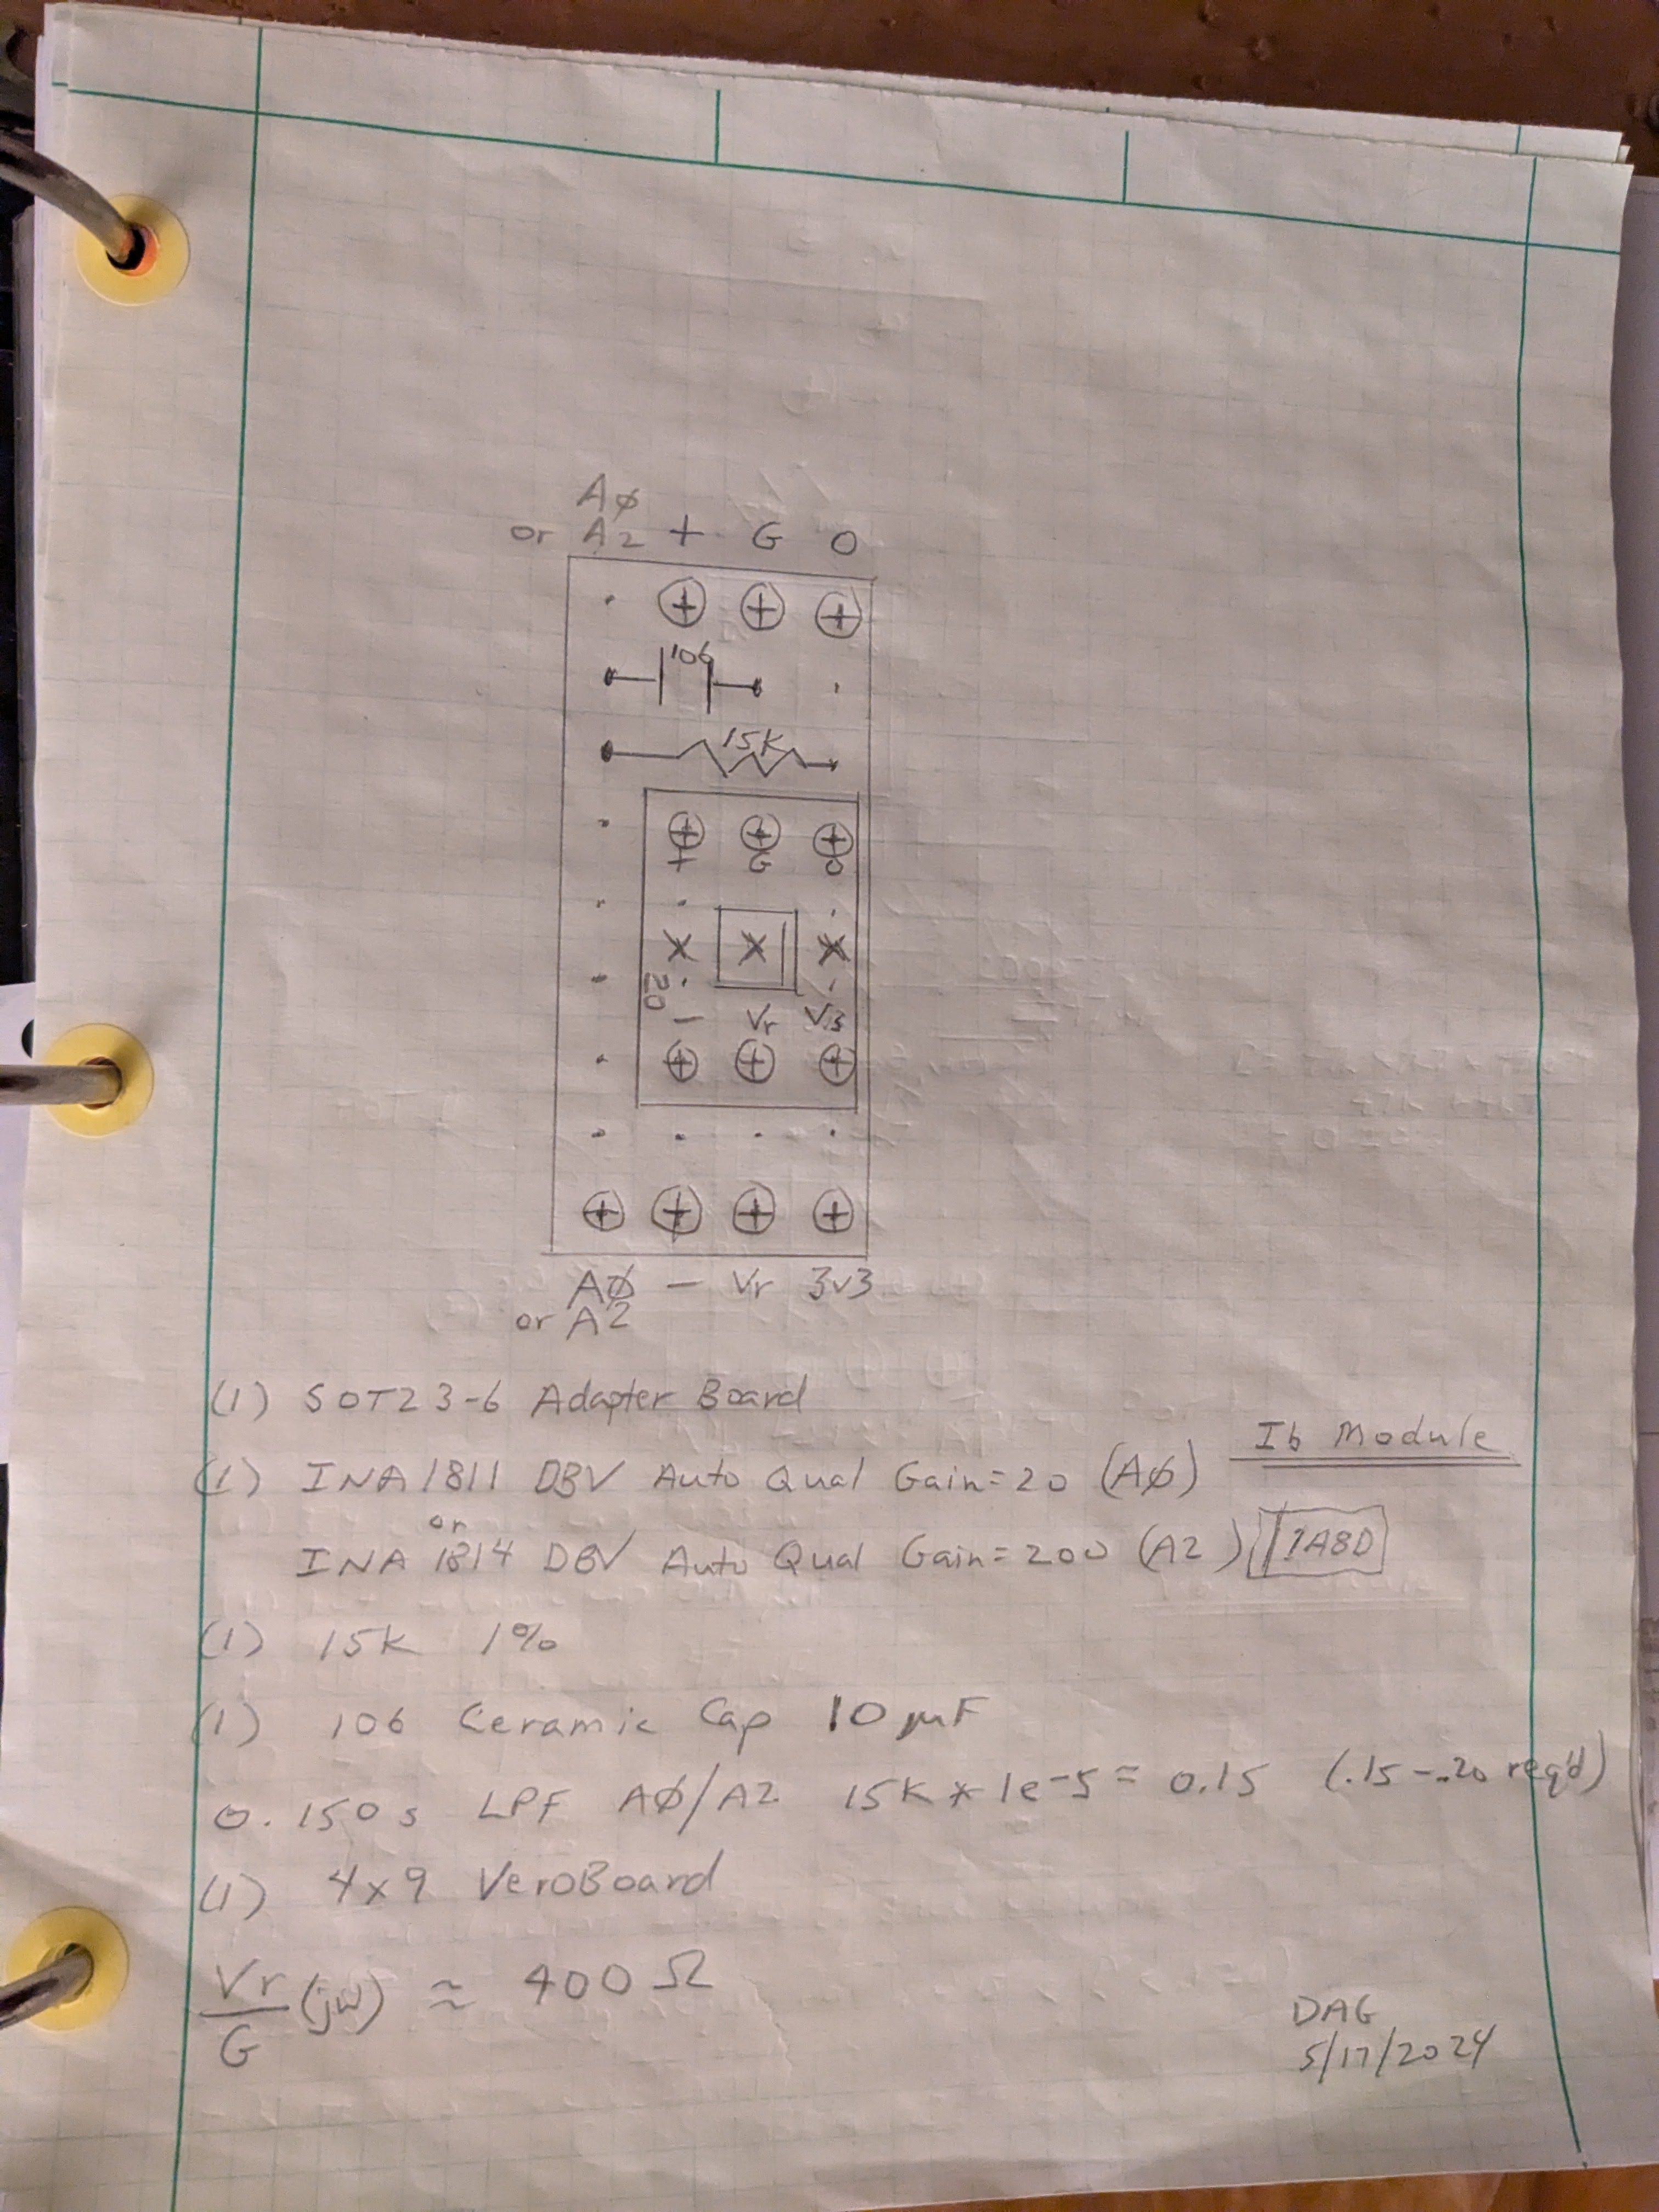 Aφ
or A2 + G O
106
15K
+ G O
20
- Vr Vs
Aφ - Vr 3v3
or A2
(1) SOT23-6 Adapter Board
Ib Module
(1) INA 1811 DBV Auto Qual Gain=20 (Aφ)
or
INA 1814 DBV Auto Qual Gain=200 (A2) 1A8D
(1) 15K 1%
(1) 106 Ceramic Cap 10 μF
0.150s LPF Aφ/A2 15K * 1e-5 = 0.15 (.15-.20 req'd)
(1) 4x9 VeroBoard
Vr/G (jω) ≈ 400 Ω
DAG
5/17/2024